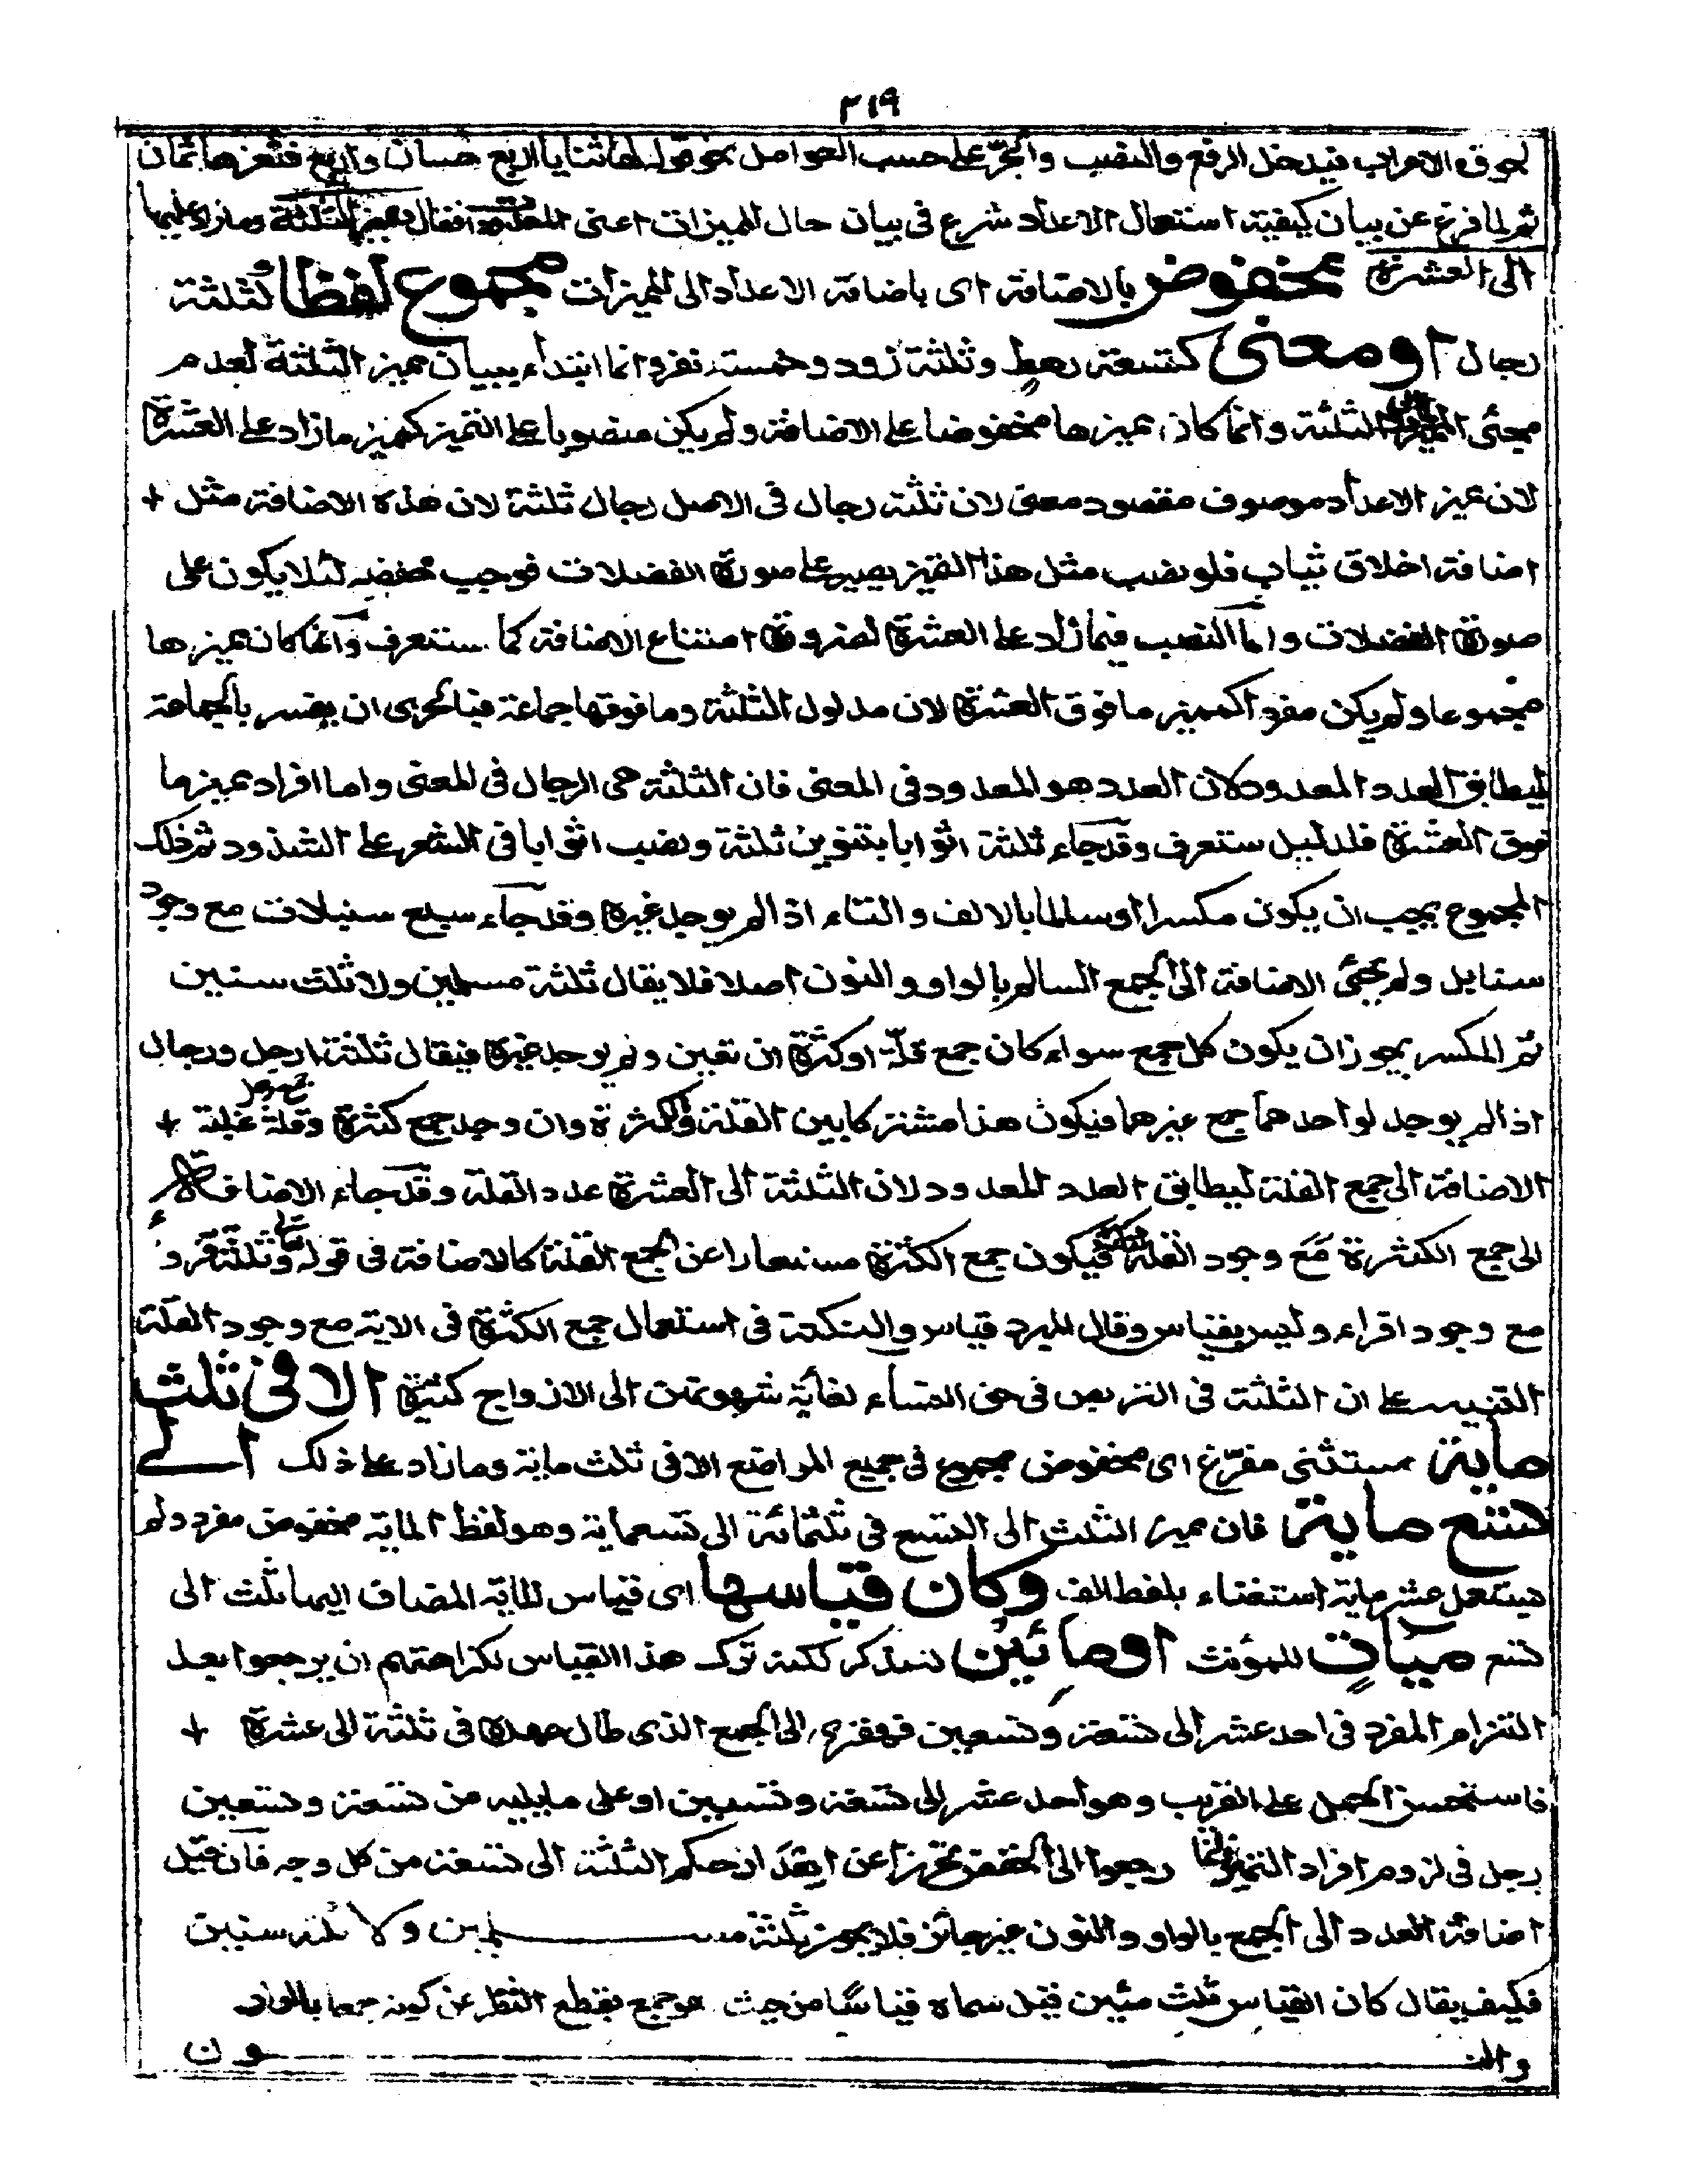 ٣١٩
لحوق الاعراب فيدخل الرفع والنصب والجر على حسب العوامل نحو قوله لها ثنايا اربع حسان واربع فثغرها ثمان
ثم لما فرغ عن بيان كيفية استعمال الاعداد شرع فى بيان حال المميزات اعنى المعدود فقال ومميز الثلثة وما زاد عليها
الى العشرة مخفوض بالاضافة اى باضافة الاعداد الى المميزات مجموع لفظا كثلثة
رجال او معنى كتسعة رهط وثلثة زود وخمسة نفر وانما ابتداء ببيان مميز الثلثة لعدم
مجئى المميز الثلثة وانما كان مميزها مخفوضا على الاضافة ولم يكن منصوبا على التميز كمميز ما زاد على العشرة
لان مميز الاعداد موصوف مقصود معنى لان ثلثة رجال فى الاصل رجال ثلثة لان هذه الاضافة مثل +
اضافة اخلاق ثياب فلو نصب مثل هذا التميز يصير على صورة الفضلات فوجب خفضه لئلا يكون على
صورة الفضلات واما النصب فيما زاد على العشرة لضرورة امتناع الاضافة كما ستعرف وانما كان مميزها
مجموعا ولم يكن مفردا كمميز ما فوق العشرة لان مدلول الثلثة وما فوقها جماعة فبالحرى ان يفسر بالجماعة
ليطابق العدد المعدود لان العدد هو المعدود فى المعنى فان الثلثة هى الرجال فى المعنى واما افراد مميزها
فوق العشرة فلدليل ستعرف وقد جاء ثلثة اثوابا بتنوين ثلثة ونصب اثوابا فى الشعر على الشذوذ ثم ذلك
المجموع يجب ان يكون مكسرا او سالما بالالف والتاء اذا لم يوجد غيره وقد جاء سبع سنبلات مع وجود
سنابل ولم يجئ الاضافة الى الجمع السالم بالواو والنون اصلا فلا يقال ثلثة مسلمين ولا ثلث سنين
ثم المكسر يجوز ان يكون كل جمع سواء كان جمع قلة او كثرة ان تعين ولم يوجد غيره فيقال ثلثة ارجل ورجال
اذا لم يوجد لواحدهما جمع غيرهما فيكون هذا مشتركا بين القلة والكثرة وان وجد جمع كثرة وقلة +
الاضافة الى جمع القلة ليطابق العدد المعدود لان الثلثة الى العشرة عدد القلة وقد جاء الاضافة
الى جمع الكثرة مع وجود القلة فيكون جمع الكثرة مستعارا عن الجمع القلة كالاضافة فى قوله تعالى ثلثة قروء
مع وجود اقراء وليس بقياس وقال المبرد قياس والنكتة فى استعمال جمع الكثرة فى الاية مع وجود القلة
التنبيه على ان الثلثة فى التربص فى حق النساء لغاية شهوتهن الى الازواج كثيرة الا فى ثلث
ماية مستثنى مفرغ اى مخفوض مجموع فى جميع المواضع الا فى ثلث ماية وما زاد على ذلك الى
تسع ماية فان مميز الثلث الى التسع فى ثلثمائة الى تسعماية وهو لفظ الماية مخفوض مفرد ولم
يستعمل عشر ماية استغناء بلفظ الف وكان قياسها اى قياس الماية المضاف اليها ثلث الى
تسع ميات للمؤنث او مائين لمذكر لكنه ترك هذا القياس لكراهتهم ان يرجعوا بعد
التزام المفرد فى احد عشر الى تسعة وتسعين الى الجمع الذى طال عهده فى ثلثة الى عشرة +
فاستحسن الحمل على القريب وهو احد عشر الى تسعة وتسعين او على ما يليه من تسعة وتسعين
رجل فى لزوم افراد التميز وانما رجعوا الى الخفض تحرزا عن اهدار حكم الثلثة الى تسعة من كل وجه فان قيل
اضافة العدد الى الجمع بالواو والنون غير جائز فلا يجوز ثلثة مسلمين ولا ثلثة سنين
فكيف يقال كان القياس ثلث مئين قيل سماه قياسا من حيث هو جمع بقطع النظر عن كونه جمعا بالواو
والنون